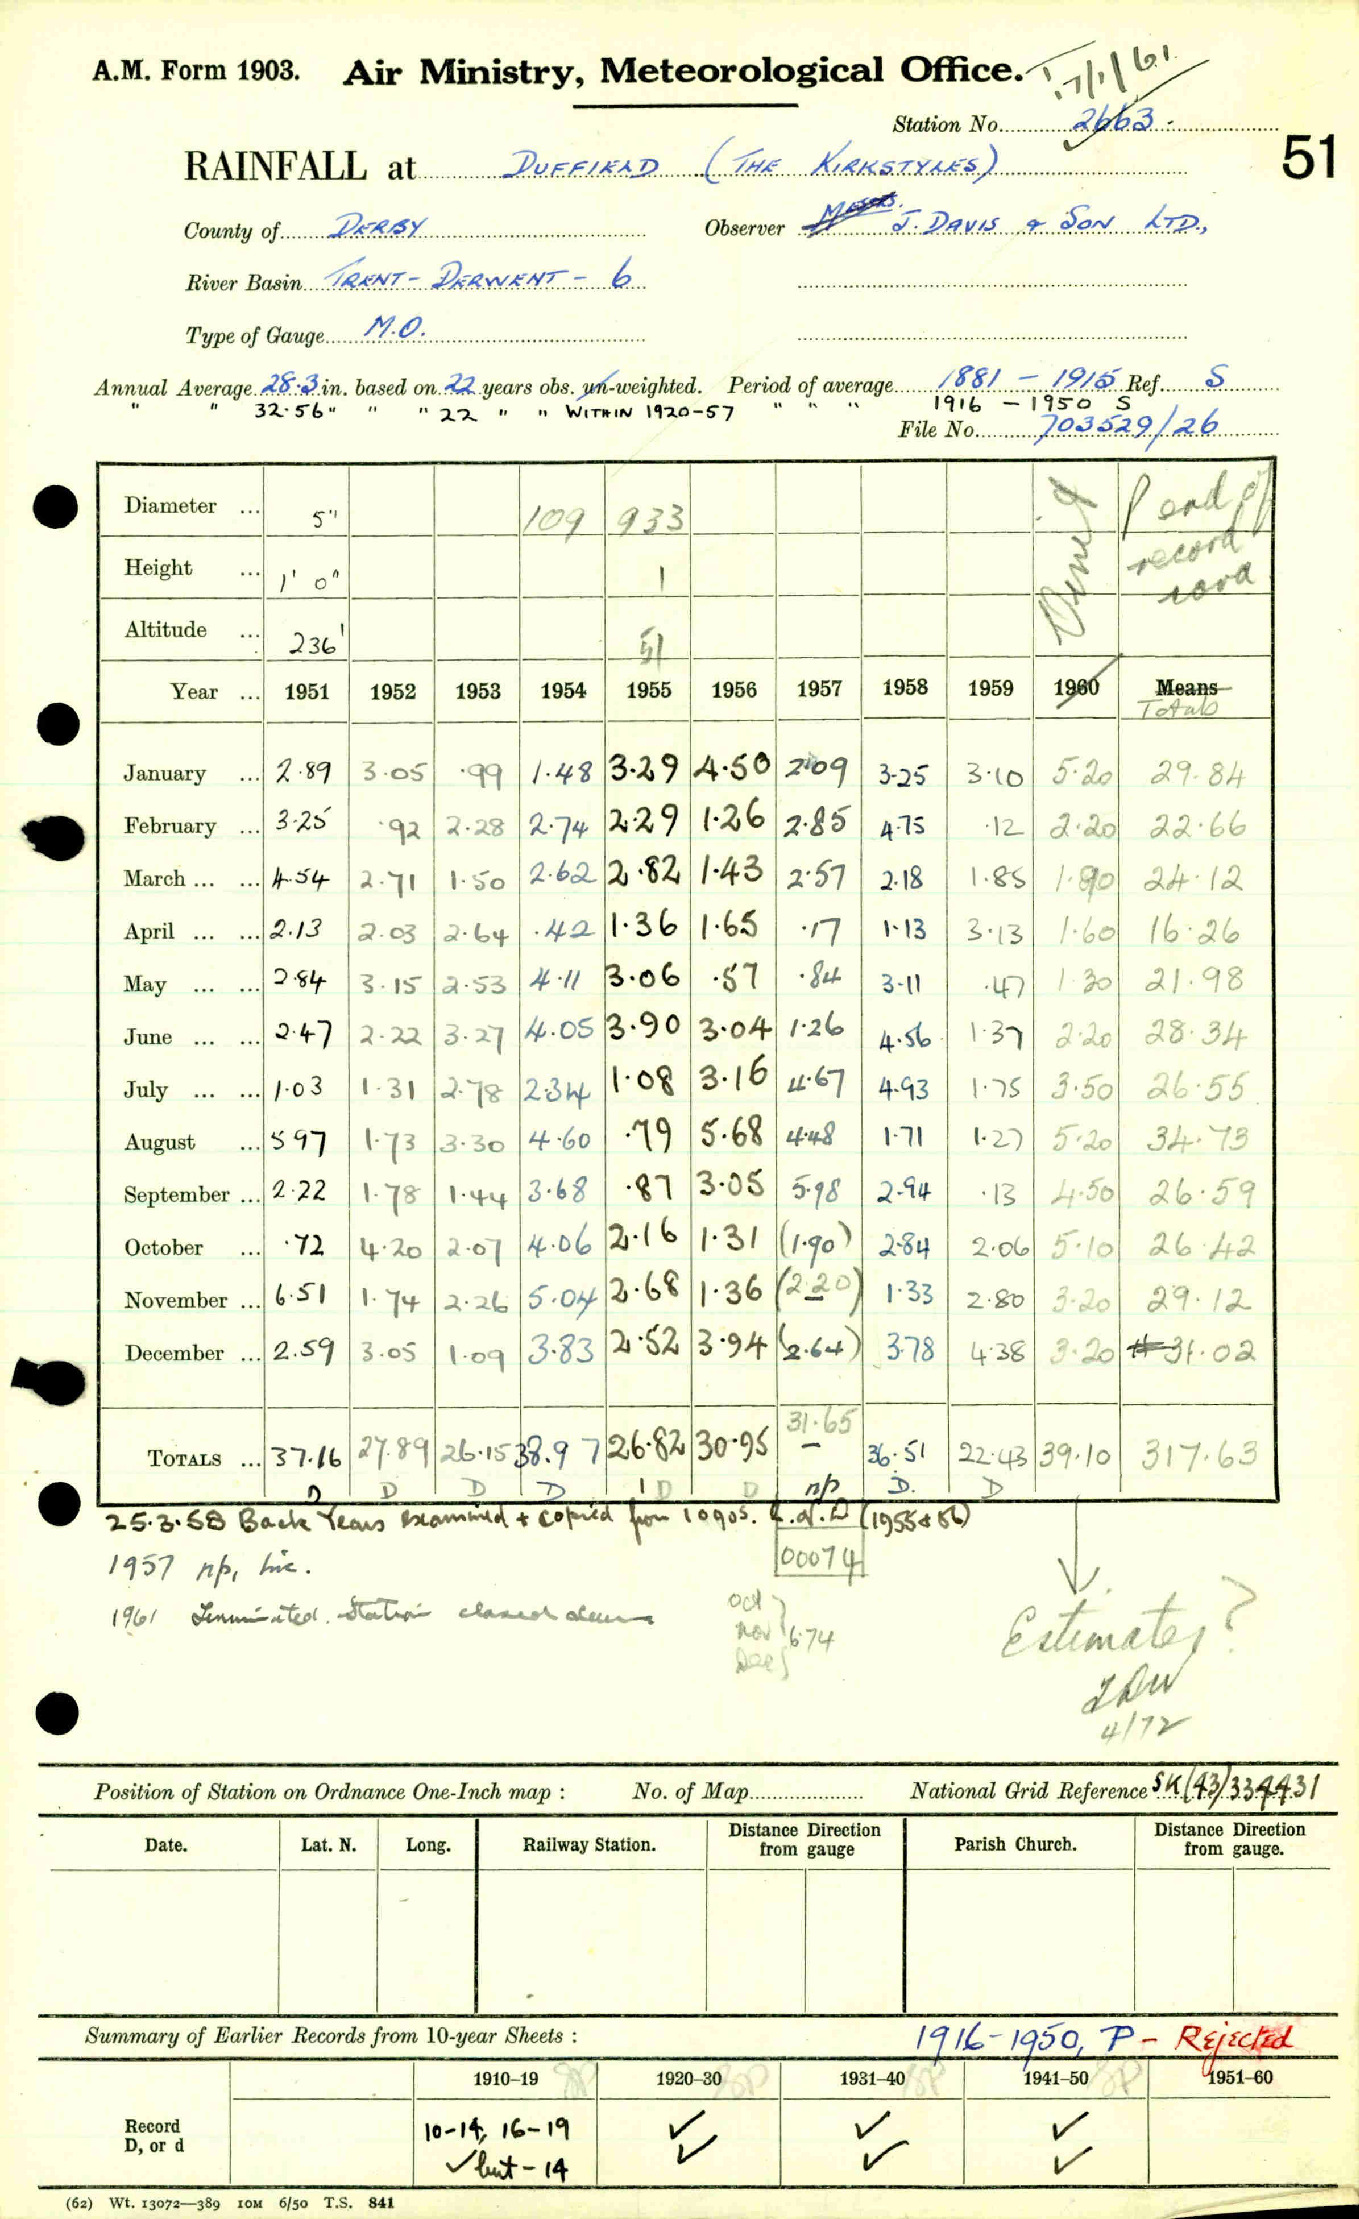 A.M. Form 1903. Air Ministry, Meteorological Office. 17/1/61
Station No. 2663.
51
RAINFALL at DUFFIELD (THE KIRKSTYLES)
County of DERBY Observer Messrs. J. DAVIS & SON LTD.,
River Basin TRENT - DERWENT - 6
Type of Gauge M.O.
Annual Average 28.3 in. based on 22 years obs. un-weighted. Period of average 1881 - 1915 Ref. S
" " 32.56" " " 22 " " WITHIN 1920-57 " " " 1916 - 1950 S
File No. 703529/26
Diameter ... 5" 109 933
Height ... 1' 0" 1
Altitude ... 236' 51
end of
record
Year ... 1951 1952 1953 1954 1955 1956 1957 1958 1959 1960 Means
Totals
January ... 2.89 3.05 .99 1.48 3.29 4.50 2.09 3.25 3.10 5.20 29.84
February ... 3.25 .92 2.28 2.74 2.29 1.26 2.85 4.75 .12 2.20 22.66
March ... ... 4.54 2.71 1.50 2.62 2.82 1.43 2.57 2.18 1.85 1.90 24.12
April ... ... 2.13 2.03 2.64 .42 1.36 1.65 .17 1.13 3.13 1.60 16.26
May ... ... 2.84 3.15 2.53 4.11 3.06 .57 .84 3.11 .47 1.30 21.98
June ... ... 2.47 2.22 3.27 4.05 3.90 3.04 1.26 4.56 1.37 2.20 28.34
July ... ... 1.03 1.31 2.78 2.34 1.08 3.16 4.67 4.93 1.75 3.50 26.55
August ... 5.97 1.73 3.30 4.60 .79 5.68 4.48 1.71 1.27 5.20 34.73
September ... 2.22 1.78 1.44 3.68 .87 3.05 5.98 2.94 .13 4.50 26.59
October ... .72 4.20 2.07 4.06 2.16 1.31 (1.90) 2.84 2.06 5.10 26.42
November ... 6.51 1.74 2.26 5.04 2.68 1.36 (2.20) 1.33 2.80 3.20 29.12
December ... 2.59 3.05 1.09 3.83 2.52 3.94 (2.64) 3.78 4.38 3.20 31.02
31.65
TOTALS ... 37.16 27.89 26.15 38.97 26.82 30.95 — 36.51 22.43 39.10 317.63
D D D D D D np D. D
25.3.58 Back Years examined & copied from 1090s. (1955 & 56)
00074
1957 np, inc.
1961 Terminated. Station closed down
Oct
Nov 6.74
Dec
Estimates?
4/72
Position of Station on Ordnance One-Inch map : No. of Map National Grid Reference SK(43)334431
Date. Lat. N. Long. Railway Station. Distance Direction from gauge Parish Church. Distance Direction from gauge.
Summary of Earlier Records from 10-year Sheets : 1916-1950, P - Rejected
1910–19 1920–30 1931–40 1941–50 1951–60
Record
D, or d
10-14, 16-19 ✓ ✓ ✓
✓ but - 14 ✓ ✓ ✓
(62) Wt. 13072—389 10M 6/50 T.S. 841